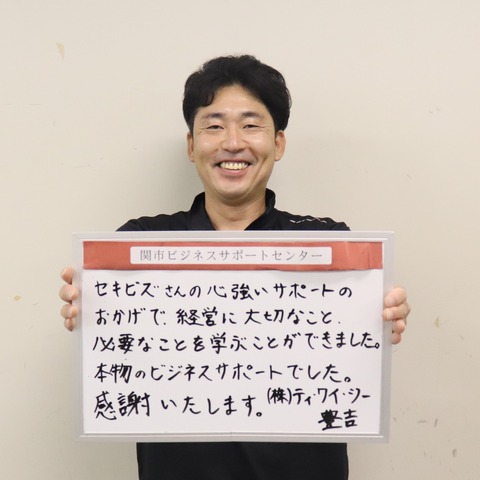 関市ビジネスサポートセンター
セキビズさんの心強いサポートの
おかげで、経営に大切なこと、
必要なことを学ぶことができました。
本物のビジネスサポートでした。
感謝いたします。(株)ティ・ワイ・シー
豊吉